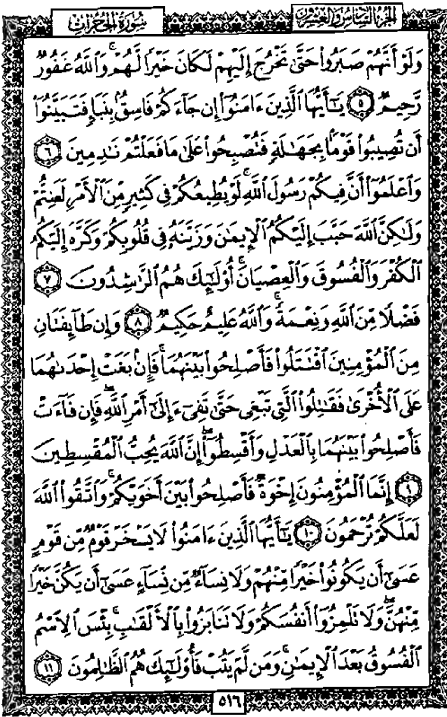 سُورَةُ الحُجُرَاتِ
الجُزْءُ السَّادِسُ وَالعِشْرُونَ
وَلَوْ أَنَّهُمْ صَبَرُواْ حَتَّىٰ تَخْرُجَ إِلَيْهِمْ لَكَانَ خَيْرًا لَّهُمْ ۚ وَٱللَّهُ غَفُورٌ
رَّحِيمٌ ٥ يَٰٓأَيُّهَا ٱلَّذِينَ ءَامَنُوٓاْ إِن جَآءَكُمْ فَاسِقٌۢ بِنَبَإٍ فَتَبَيَّنُوٓاْ
أَن تُصِيبُواْ قَوْمًۢا بِجَهَٰلَةٍ فَتُصْبِحُواْ عَلَىٰ مَا فَعَلْتُمْ نَٰدِمِينَ ٦
وَٱعْلَمُوٓاْ أَنَّ فِيكُمْ رَسُولَ ٱللَّهِ ۚ لَوْ يُطِيعُكُمْ فِى كَثِيرٍ مِّنَ ٱلْأَمْرِ لَعَنِتُّمْ
وَلَٰكِنَّ ٱللَّهَ حَبَّبَ إِلَيْكُمُ ٱلْإِيمَٰنَ وَزَيَّنَهُۥ فِى قُلُوبِكُمْ وَكَرَّهَ إِلَيْكُمُ
ٱلْكُفْرَ وَٱلْفُسُوقَ وَٱلْعِصْيَانَ ۚ أُوْلَٰٓئِكَ هُمُ ٱلرَّٰشِدُونَ ٧
فَضْلًا مِّنَ ٱللَّهِ وَنِعْمَةً ۚ وَٱللَّهُ عَلِيمٌ حَكِيمٌ ٨ وَإِن طَآئِفَتَانِ
مِنَ ٱلْمُؤْمِنِينَ ٱقْتَتَلُواْ فَأَصْلِحُواْ بَيْنَهُمَا ۖ فَإِنۢ بَغَتْ إِحْدَىٰهُمَا
عَلَى ٱلْأُخْرَىٰ فَقَٰتِلُواْ ٱلَّتِى تَبْغِى حَتَّىٰ تَفِىٓءَ إِلَىٰٓ أَمْرِ ٱللَّهِ ۚ فَإِن فَآءَتْ
فَأَصْلِحُواْ بَيْنَهُمَا بِٱلْعَدْلِ وَأَقْسِطُوٓاْ ۖ إِنَّ ٱللَّهَ يُحِبُّ ٱلْمُقْسِطِينَ
٩ إِنَّمَا ٱلْمُؤْمِنُونَ إِخْوَةٌ فَأَصْلِحُواْ بَيْنَ أَخَوَيْكُمْ ۚ وَٱتَّقُواْ ٱللَّهَ
لَعَلَّكُمْ تُرْحَمُونَ ١٠ يَٰٓأَيُّهَا ٱلَّذِينَ ءَامَنُواْ لَا يَسْخَرْ قَوْمٌ مِّن قَوْمٍ
عَسَىٰٓ أَن يَكُونُواْ خَيْرًا مِّنْهُمْ وَلَا نِسَآءٌ مِّن نِّسَآءٍ عَسَىٰٓ أَن يَكُنَّ خَيْرًا
مِّنْهُنَّ ۖ وَلَا تَلْمِزُوٓاْ أَنفُسَكُمْ وَلَا تَنَابَزُواْ بِٱلْأَلْقَٰبِ ۖ بِئْسَ ٱلِٱسْمُ
ٱلْفُسُوقُ بَعْدَ ٱلْإِيمَٰنِ ۚ وَمَن لَّمْ يَتُبْ فَأُوْلَٰٓئِكَ هُمُ ٱلظَّٰلِمُونَ ١١
٥١٦